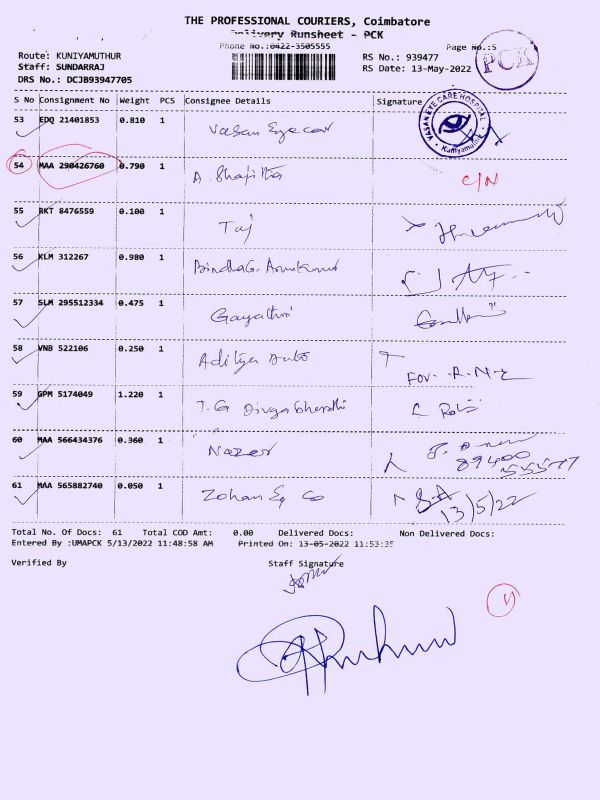 THE PROFESSIONAL COURIERS, Coimbatore
Delivery Runsheet - PCK
Phone No.:0422-3505555
Page No.:5
Route: KUNIYAMUTHUR
Staff: SUNDARRAJ
DRS No.: DCJB93947705
RS No.: 939477
RS Date: 13-May-2022
PCK
S No Consignment No Weight PCS Consignee Details Signature
VASAN EYE CARE HOSPITAL
Kuniyamuthur
53 EDQ 21401853 0.810 1 Vasan Eyecar
54 MAA 290426760 0.790 1 A. Shajitha C/N
55 RKT 8476559 0.100 1 Taj
56 KLM 312267 0.980 1
57 SLM 295512334 0.475 1 Gayathri
58 VNB 522106 0.250 1 Aditya Auto For. R.N.E
59 GPM 5174049 1.220 1 T.G Divyabharathi
60 MAA 566434376 0.360 1 Nazer 89400
55577
61 MAA 565882740 0.050 1 Zohan Eq Co
13/5/22
Total No. Of Docs: 61 Total COD Amt: 0.00 Delivered Docs: Non Delivered Docs:
Entered By :UMAPCK 5/13/2022 11:48:58 AM Printed On: 13-05-2022 11:53:35
Verified By Staff Signature